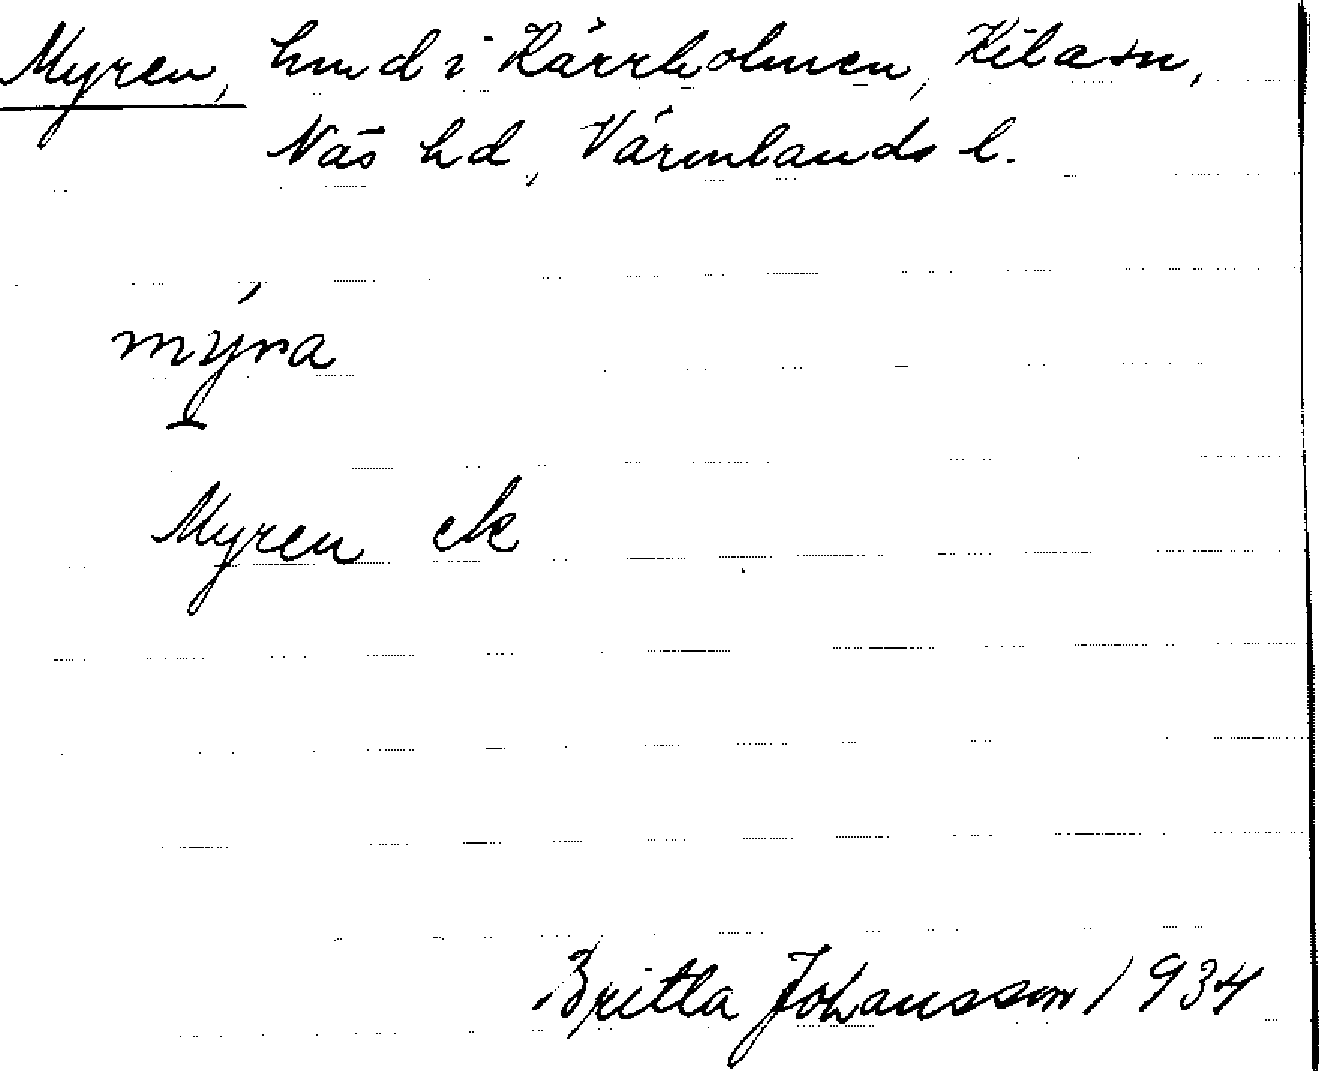 Myren, hmd i Kärrholmen, Kila sn,
Näs hd, Värmlands l.
my̆ra
Myren ek
Britta Johansson 1934